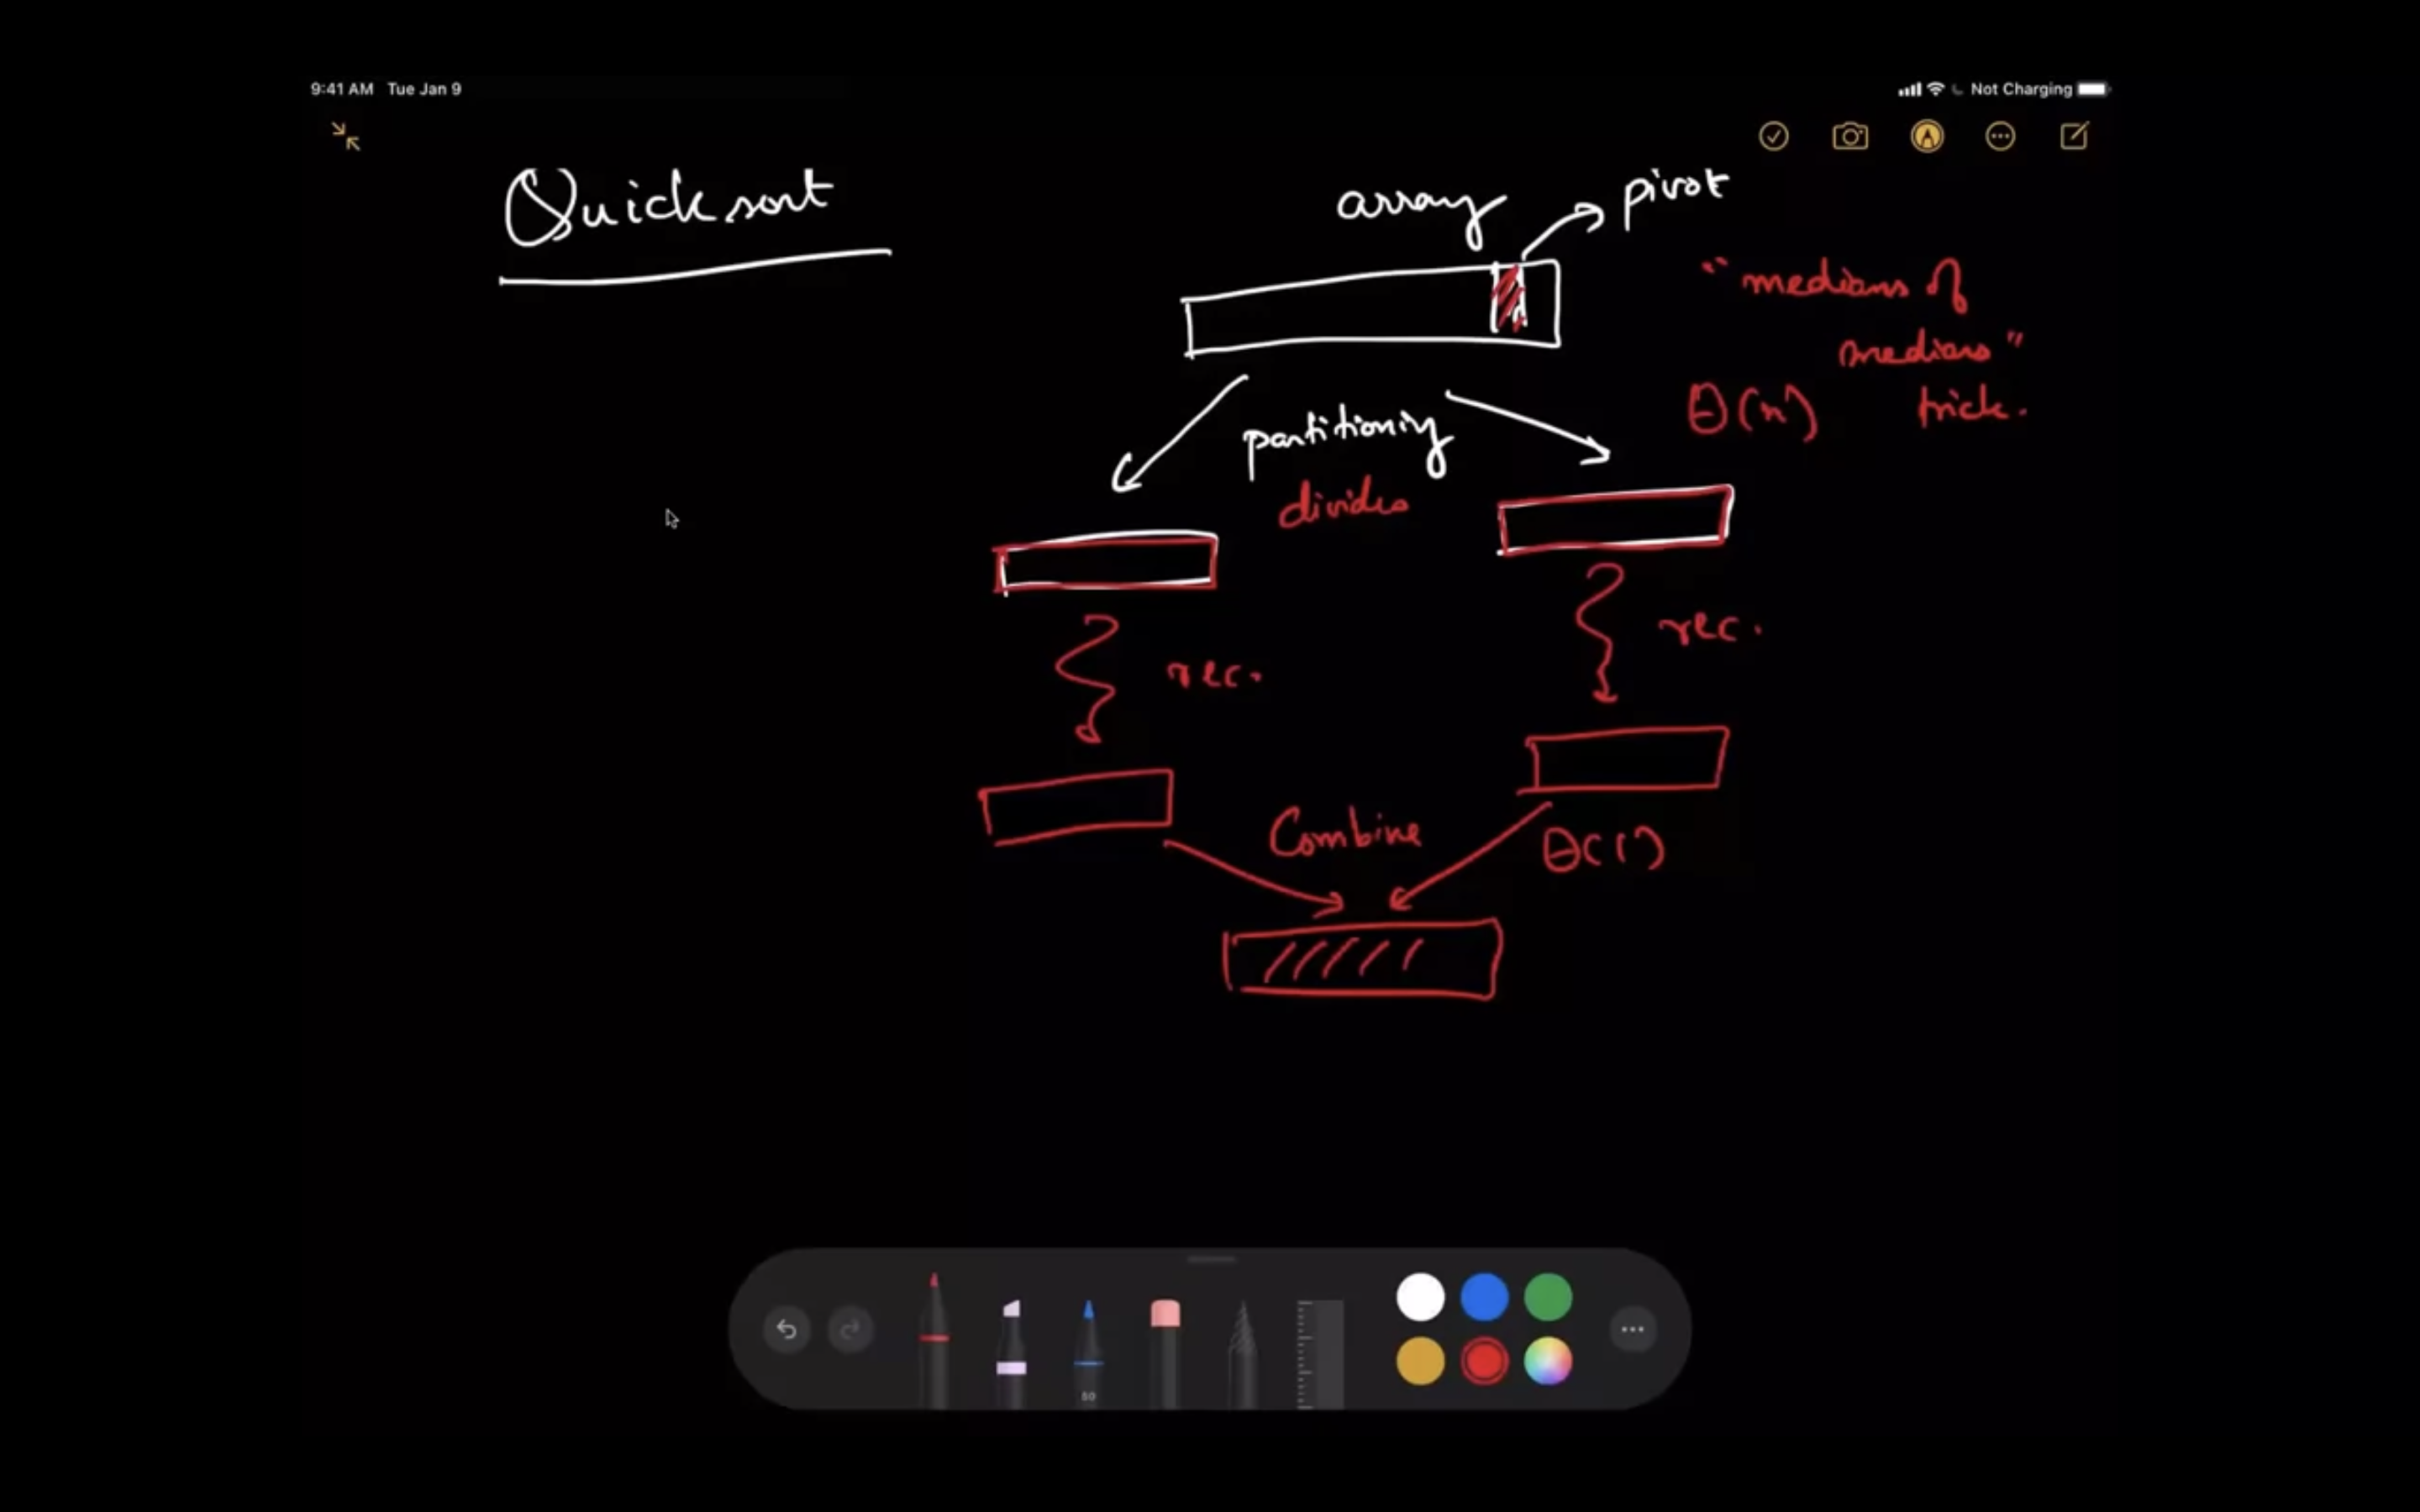 9:41 AM Tue Jan 9
Not Charging
Quicksort
array
pivot
"medians of
medians"
trick.
Θ(n)
partitioning
divides
rec.
rec.
Combine
Θ(1)
50